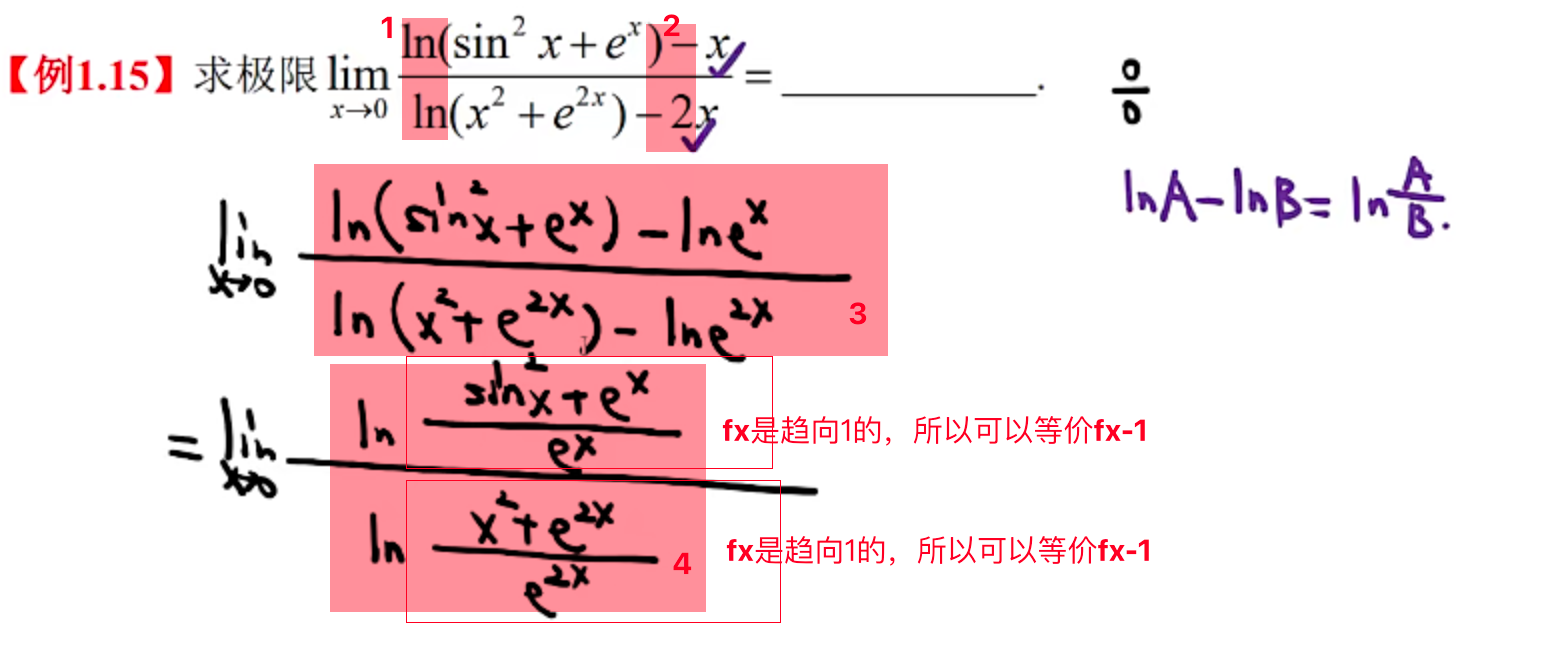 【例1.15】求极限 lim x→0 ln(sin² x + eˣ) − x / ln(x² + e²ˣ) − 2x = ________.
1
2
0/0
lnA − lnB = ln A/B.
lim x→0 ln(sin²x + eˣ) − lneˣ / ln(x² + e²ˣ) − lne²ˣ
3
= lim x→0 ln (sin²x + eˣ)/eˣ / ln (x² + e²ˣ)/e²ˣ
fx是趋向1的，所以可以等价fx-1
fx是趋向1的，所以可以等价fx-1
4